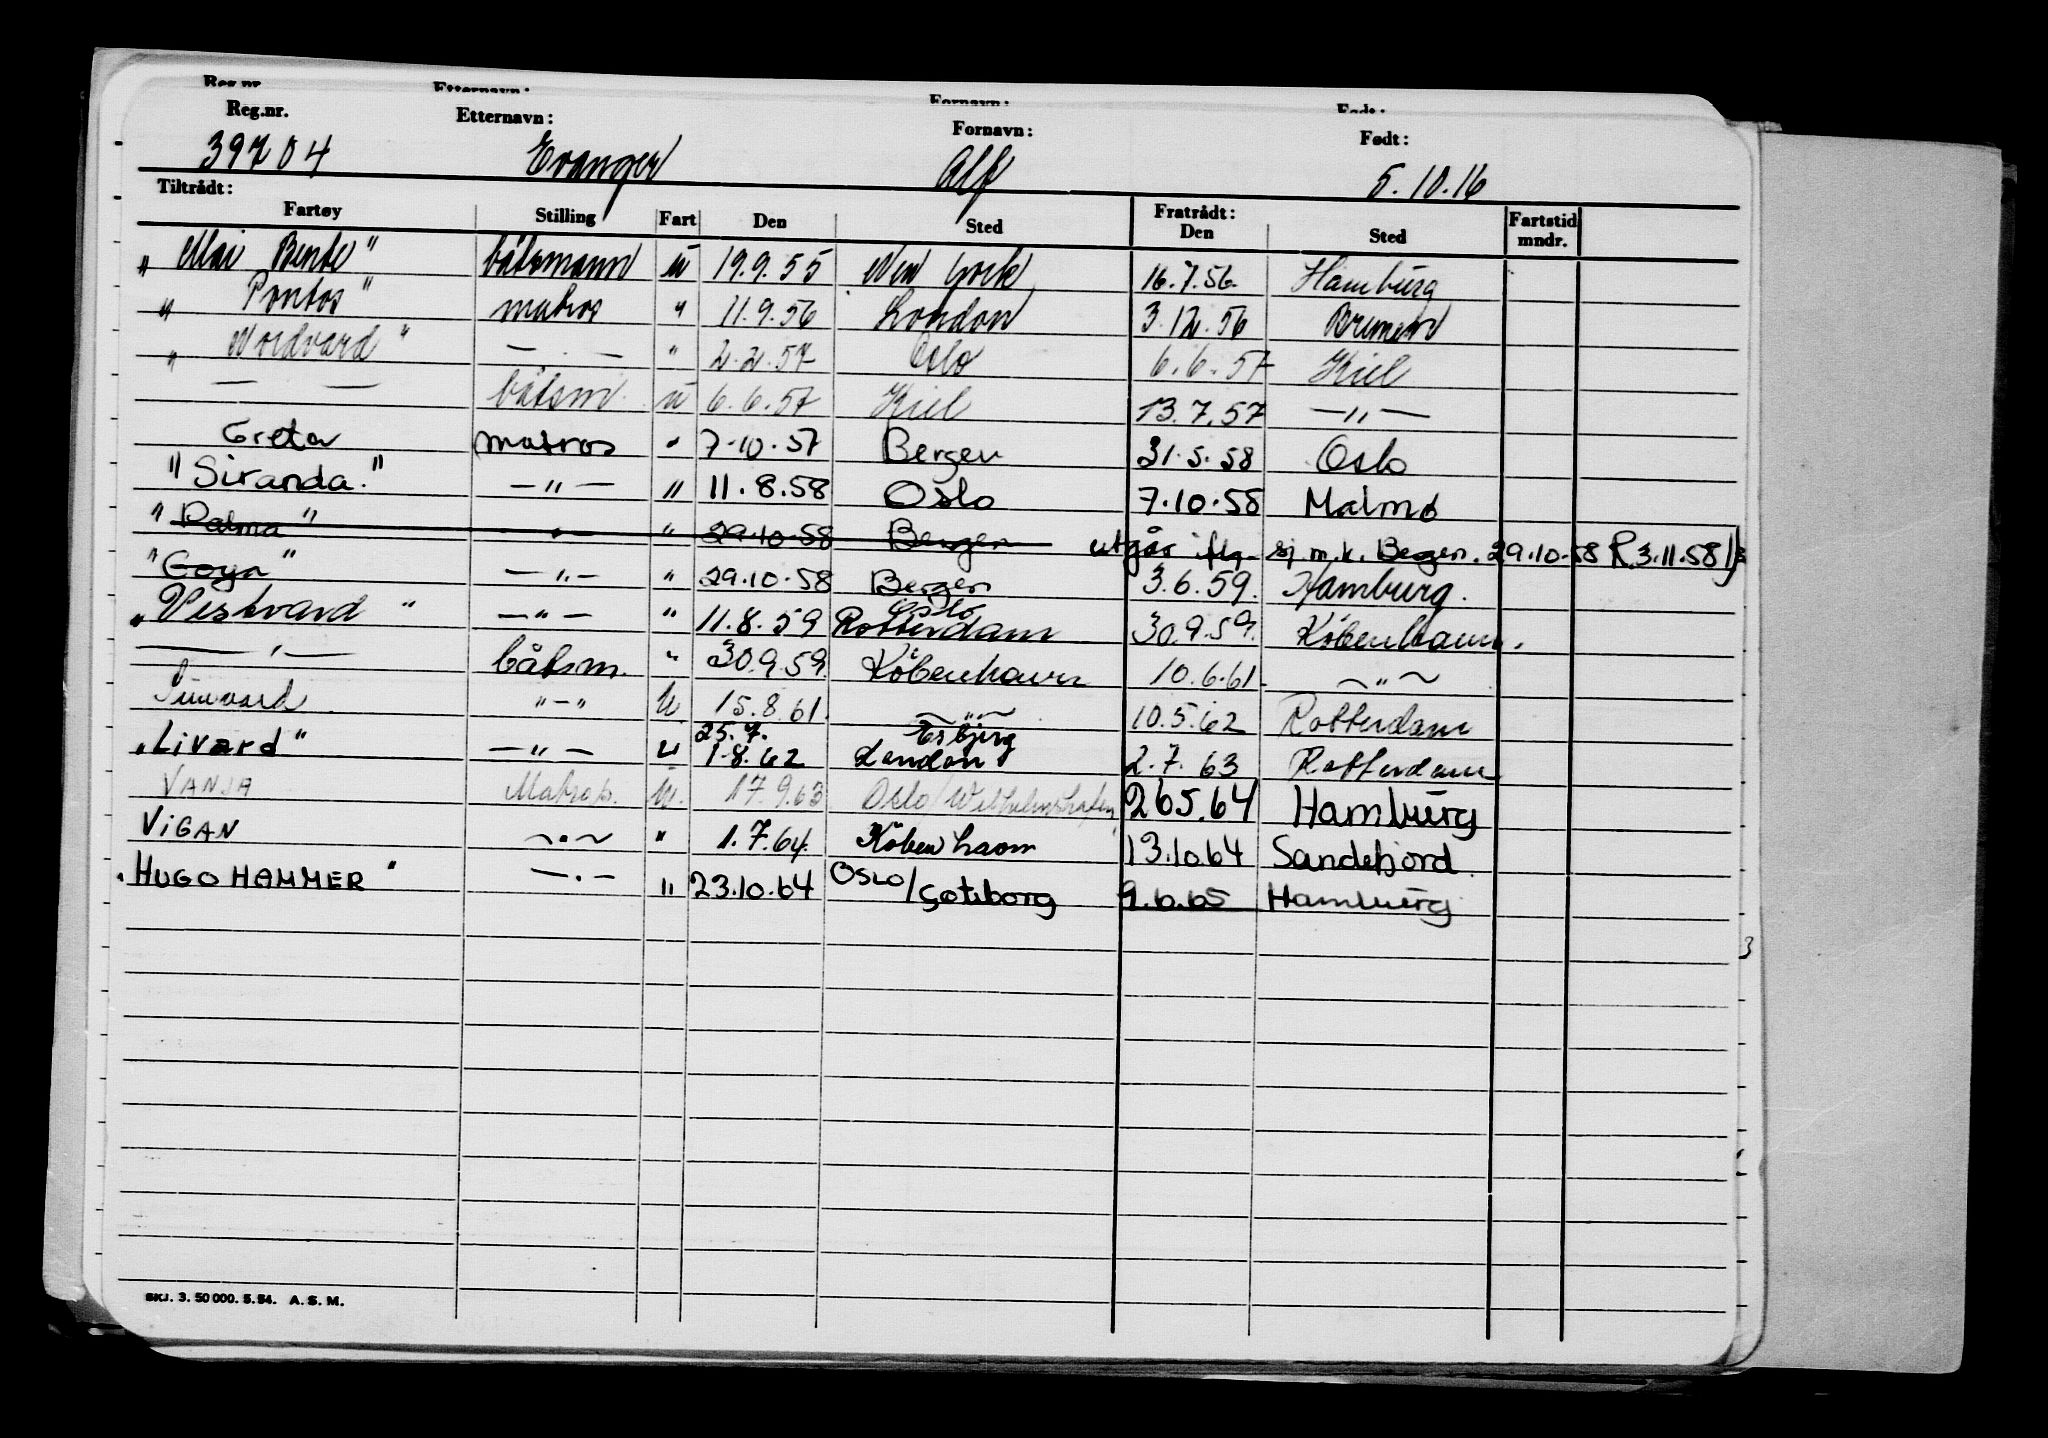 Reg.nr. Etternavn: Fornavn: Født:
Reg.nr. Etternavn: Fornavn: Født:
39704 Evanger Alf 5.10.16
Tiltrådt: Fratrådt:
Fartøy Stilling Fart Den Sted Den Sted Fartstid mndr.
"Mai Bente" båtsmann u 19.9.55 New York 16.7.56. Hamburg
" Pontos" matros " 11.9.56 London 3.12.56 Bremen
" Nordvard" — . — " 2.2.57 Oslo 6.6.57 Kiel
— — båtsm. u 6.6.57 Kiel 13.7.57 —"—
Greta matros " 7.10.57 Bergen 31.5.58 Oslo
"Siranda." —"— " 11.8.58 Oslo 7.10.58 Malmø
"Palma" —"— " 29.10.58 Bergen utgår iflg. sj.m.k. Bergen. 29.10.58 R.3.11.58
"Goya" —"— " 29.10.58 Bergen 3.6.59. Hamburg.
Oslo
"Vestvard" —"— " 11.8.59 Rotterdam 30.9.59. København.
—"— båtsm. " 30.9.59. København 10.6.61. —"—
"—" U 15.8.61. —"— 10.5.62 Rotterdam
25.7. Esbjerg
"Livard" —"— u 1.8.62 London 2.7.63 Rotterdam
VANJA Matros. U. 17.9.63 Oslo/Wilhelmshafen 26.5.64 Hamburg
ViGAN —"— " 1.7.64. København 13.10.64 Sandefjord.
"HUGO HAMMER" —.— " 23.10.64 Oslo/Gøteborg 9.6.65 Hamburg
3
SKJ. 3. 50 000. 5.54. A.S.M.